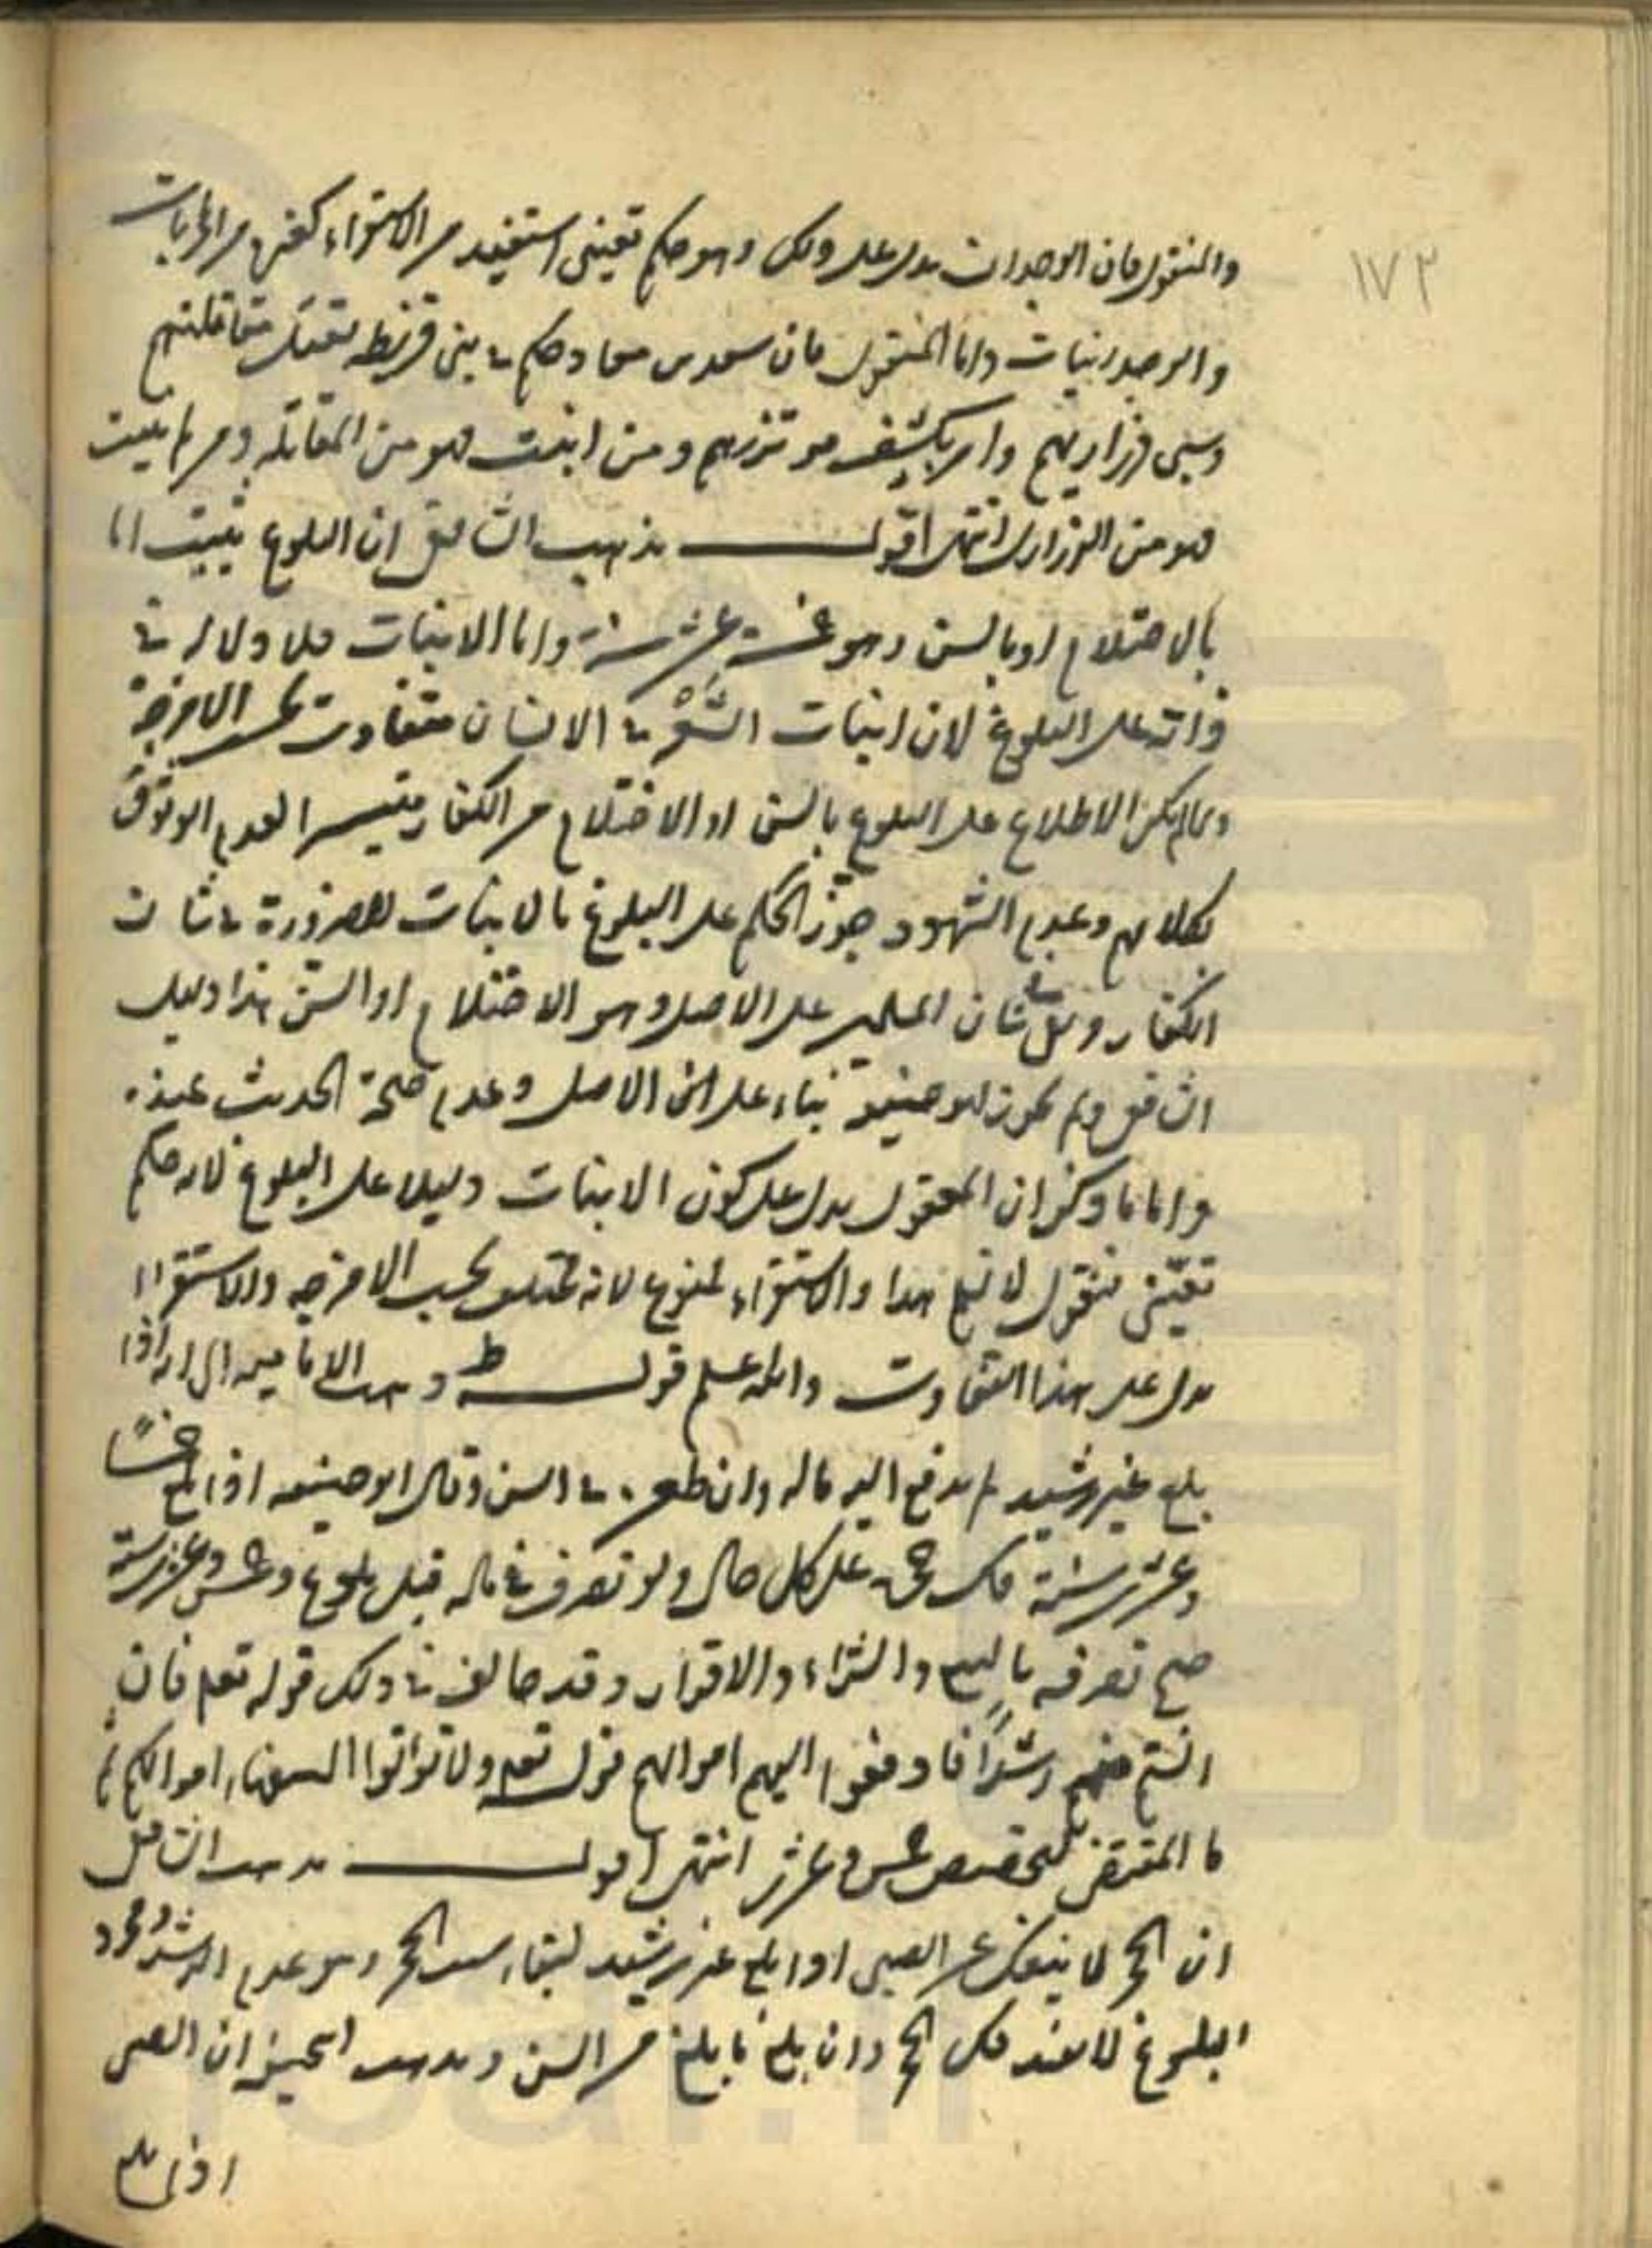 ١٧٣
والمنقول فان الوجدان يدل على ذلك وهو حكم تعيني استفيد من الاستقراء كغيره من التجربيات
والوجدانيات واما المنقول فان سعد بن معاذ حكم في بني قريظة بقتل مقاتلتهم
وسبي ذراريهم وامر بكشف مؤتزرهم ومن انبت فهو من المقاتلة ومن لم ينبت
فهو من الذراري انتهى اقول مذهب الشافعي ان البلوغ يثبت اما
بالاحتلام او بالسن وهو خمسة عشر سنة واما الانبات فلا دلالة في
ذاته على البلوغ لان انبات الشعر في الانسان متفاوت بحسب الامزجة
ولما لم يكن الاطلاع على البلوغ بالسن او الاحتلام من الكفار متيسرا لعدم الوثوق
بكلامهم وعدم الشهود جوز الحكم على البلوغ بالانبات للضرورة في شان
الكفار وبقي في شان المسلمين على الاصل وهو الاحتلام او السن هذا دليل
الشافعي ولم يجوزه ابو حنيفة بناء على الاصل وعدم صحة الحديث عنده
واما ما ذكر ان المعقول يدل على كون الانبات دليلا على البلوغ لانه حكم
تعيني فنقول لا نسلم هذا والاستقراء ممنوع لانه مختلف بحسب الامزجه والاستقراء
يدل على هذا التفاوت والله اعلم قوله ط ذهبت الامامية الى انه اذا
بلغ غير رشيد لم يدفع اليه ماله وان طعن في السن وقال ابو حنيفه اذا بلغ خمسًا
وعشرين سنة فك حجره على كل حال ولو تصرف في ماله قبل بلوغ خمس وعشرين سنة
صح تصرفه بالبيع والشراء والاقرار وقد خالف في ذلك قوله تعالى فان
انستم منهم رشدًا فادفعوا اليهم اموالهم قوله تعالى ولا تؤاتوا السفهاء اموالكم ثم
ما المقتضي لتخصيص خمس وعشرين انتهى اقول مذهب الشافعي
ان الحجر لا ينفك عن الصبي اذا بلغ غير رشيد لبقاء سبب الحجر وهو عدم الرشد ومجرد
البلوغ لا يفيد فك الحجر وان بلغ ما بلغ من السن ومذهب الحنيفة ان الصبي
اذا بلغ